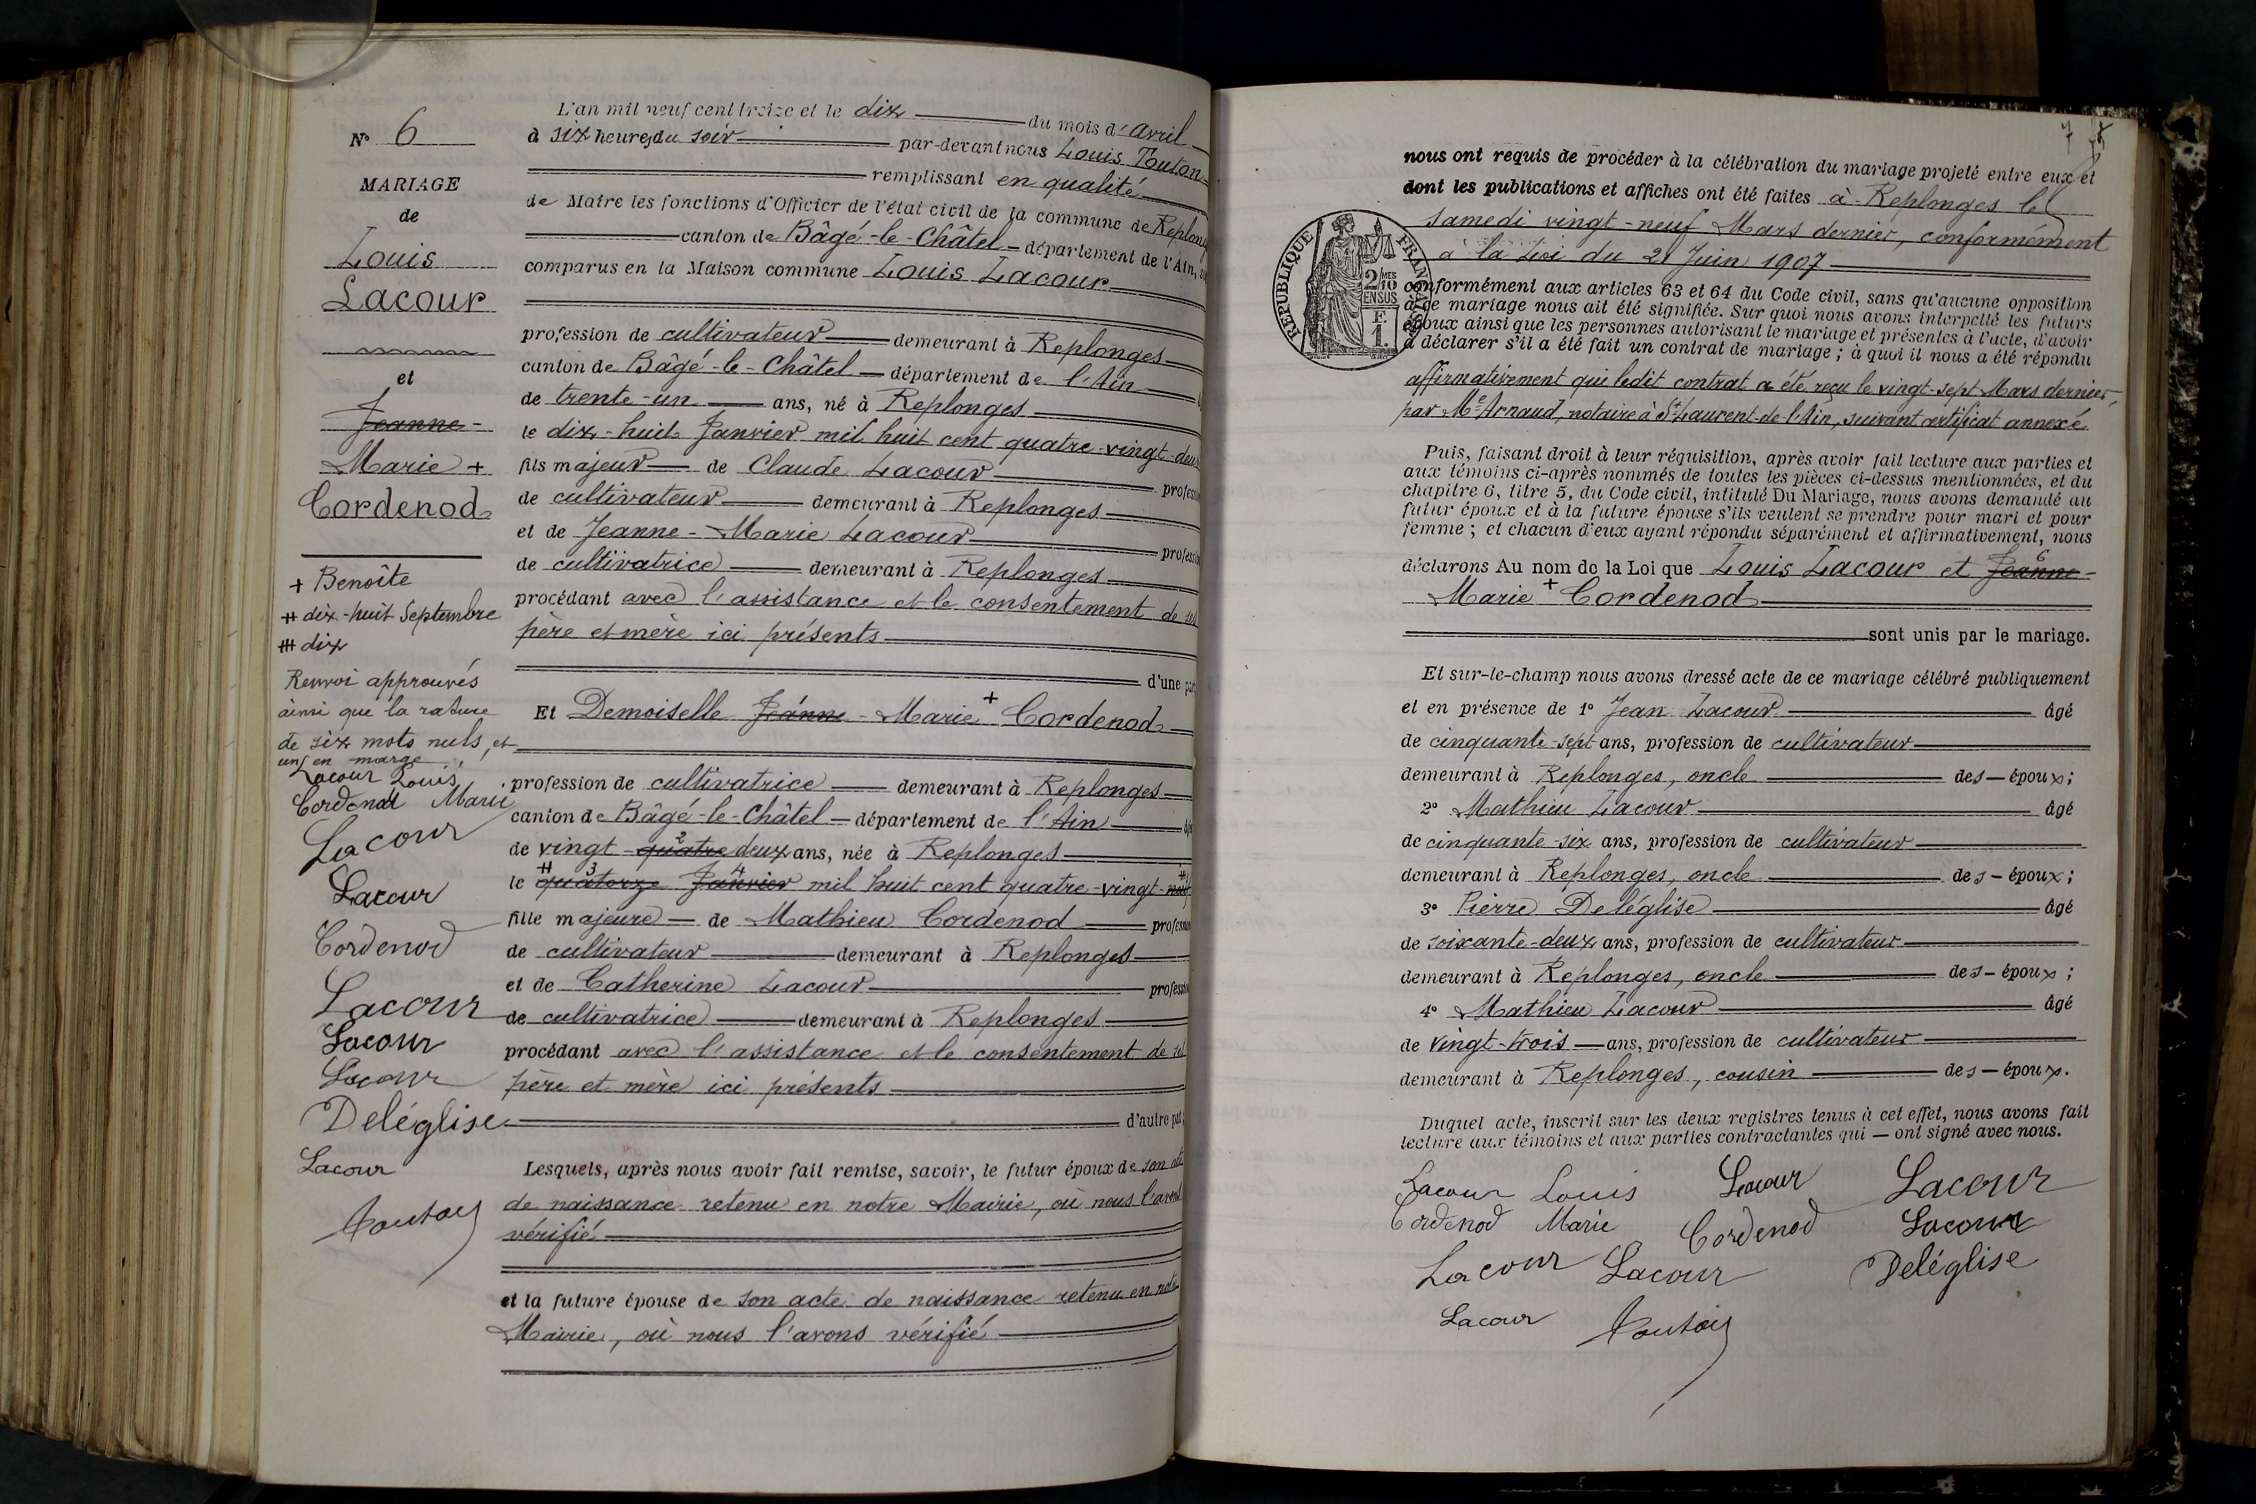 N° 6
MARIAGE
de
Louis
Lacour
et
Jeanne -
Marie +
Cordenod
+ Benoîte
# dix-huit Septembre
# dix
Renvoi approuvés
ainsi que la rature
de six mots nuls, et
un en marge
Lacour Louis
Cordenod Marie
Lacour
Lacour
Cordenod
Lacour
Lacour
Lacour
Deléglise
Lacour
Touton
L'an mil neuf cent treize et le dix du mois d'avril
à six heures du soir par-devant nous Louis Touton
remplissant en qualité
de Maire les fonctions d'Officier de l'état civil de la commune de Replon
canton de Bâgé-le-Châtel département de l'Ain,
comparus en la Maison commune Louis Lacour
profession de cultivateur demeurant à Replonges
canton de Bâgé-le-Châtel département de l'Ain
de trente-un ans, né à Replonges
le dix-huit Janvier mil huit cent quatre-vingt-deux
fils majeur de Claude Lacour profess
de cultivateur demeurant à Replonges
et de Jeanne-Marie Lacour profess
de cultivatrice demeurant à Replonges
procédant avec l'assistance et le consentement de ses
père et mère ici présents
d'une par
Et Demoiselle Jeanne - Marie + Cordenod
profession de cultivatrice demeurant à Replonges
canton de Bâgé-le-Châtel département de l'Ain
de vingt-quatre 2 deux ans, née à Replonges
le # quatorze 3 Janvier 4 mil huit cent quatre-vingt-neuf #
fille majeure de Mathieu Cordenod profession
de cultivateur demeurant à Replonges
et de Catherine Lacour profess
de cultivatrice demeurant à Replonges
procédant avec l'assistance et le consentement de ses
père et mère ici présents
d'autre part
Lesquels, après nous avoir fait remise, savoir, le futur époux de son
de naissance retenu en notre Mairie, où nous l'avons
vérifié
et la future épouse de son acte de naissance retenu en
Mairie, où nous l'avons vérifié
7
nous ont requis de procéder à la célébration du mariage projeté entre eux et
dont les publications et affiches ont été faites à Replonges le
samedi vingt-neuf Mars dernier, conformément
à la Loi du 21 Juin 1907
RÉPUBLIQUE FRANÇAISE
2/10MES
EN SUS
F.
1.
conformément aux articles 63 et 64 du Code civil, sans qu'aucune opposition
à ce mariage nous ait été signifiée. Sur quoi nous avons interpellé les futurs
époux ainsi que les personnes autorisant le mariage et présentes à l'acte, d'avoir
à déclarer s'il a été fait un contrat de mariage ; à quoi il nous a été répondu
affirmativement que ledit contrat a été reçu le vingt-sept Mars dernier,
par Me Arnaud, notaire à St Laurent-de-l'Ain, suivant certificat annexé
Puis, faisant droit à leur réquisition, après avoir fait lecture aux parties et
aux témoins ci-après nommés de toutes les pièces ci-dessus mentionnées, et du
chapitre 6, titre 5, du Code civil, intitulé Du Mariage, nous avons demandé au
futur époux et à la future épouse s'ils veulent se prendre pour mari et pour
femme ; et chacun d'eux ayant répondu séparément et affirmativement, nous
déclarons Au nom de la Loi que Louis Lacour et Jeanne 6 -
Marie + Cordenod
sont unis par le mariage.
Et sur-le-champ nous avons dressé acte de ce mariage célébré publiquement
et en présence de 1° Jean Lacour âgé
de cinquante-sept ans, profession de cultivateur
demeurant à Replonges, oncle des époux ;
2° Mathieu Lacour âgé
de cinquante-six ans, profession de cultivateur
demeurant à Replonges, oncle des époux ;
3° Pierre Deléglise âgé
de soixante-deux ans, profession de cultivateur
demeurant à Replonges, oncle des époux ;
4° Mathieu Lacour âgé
de vingt-trois ans, profession de cultivateur
demeurant à Replonges, cousin des époux.
Duquel acte, inscrit sur les deux registres tenus à cet effet, nous avons fait
lecture aux témoins et aux parties contractantes qui ont signé avec nous.
Lacour Louis Lacour Lacour
Cordenod Marie Cordenod Lacour
Lacour Lacour Deléglise
Lacour Touton